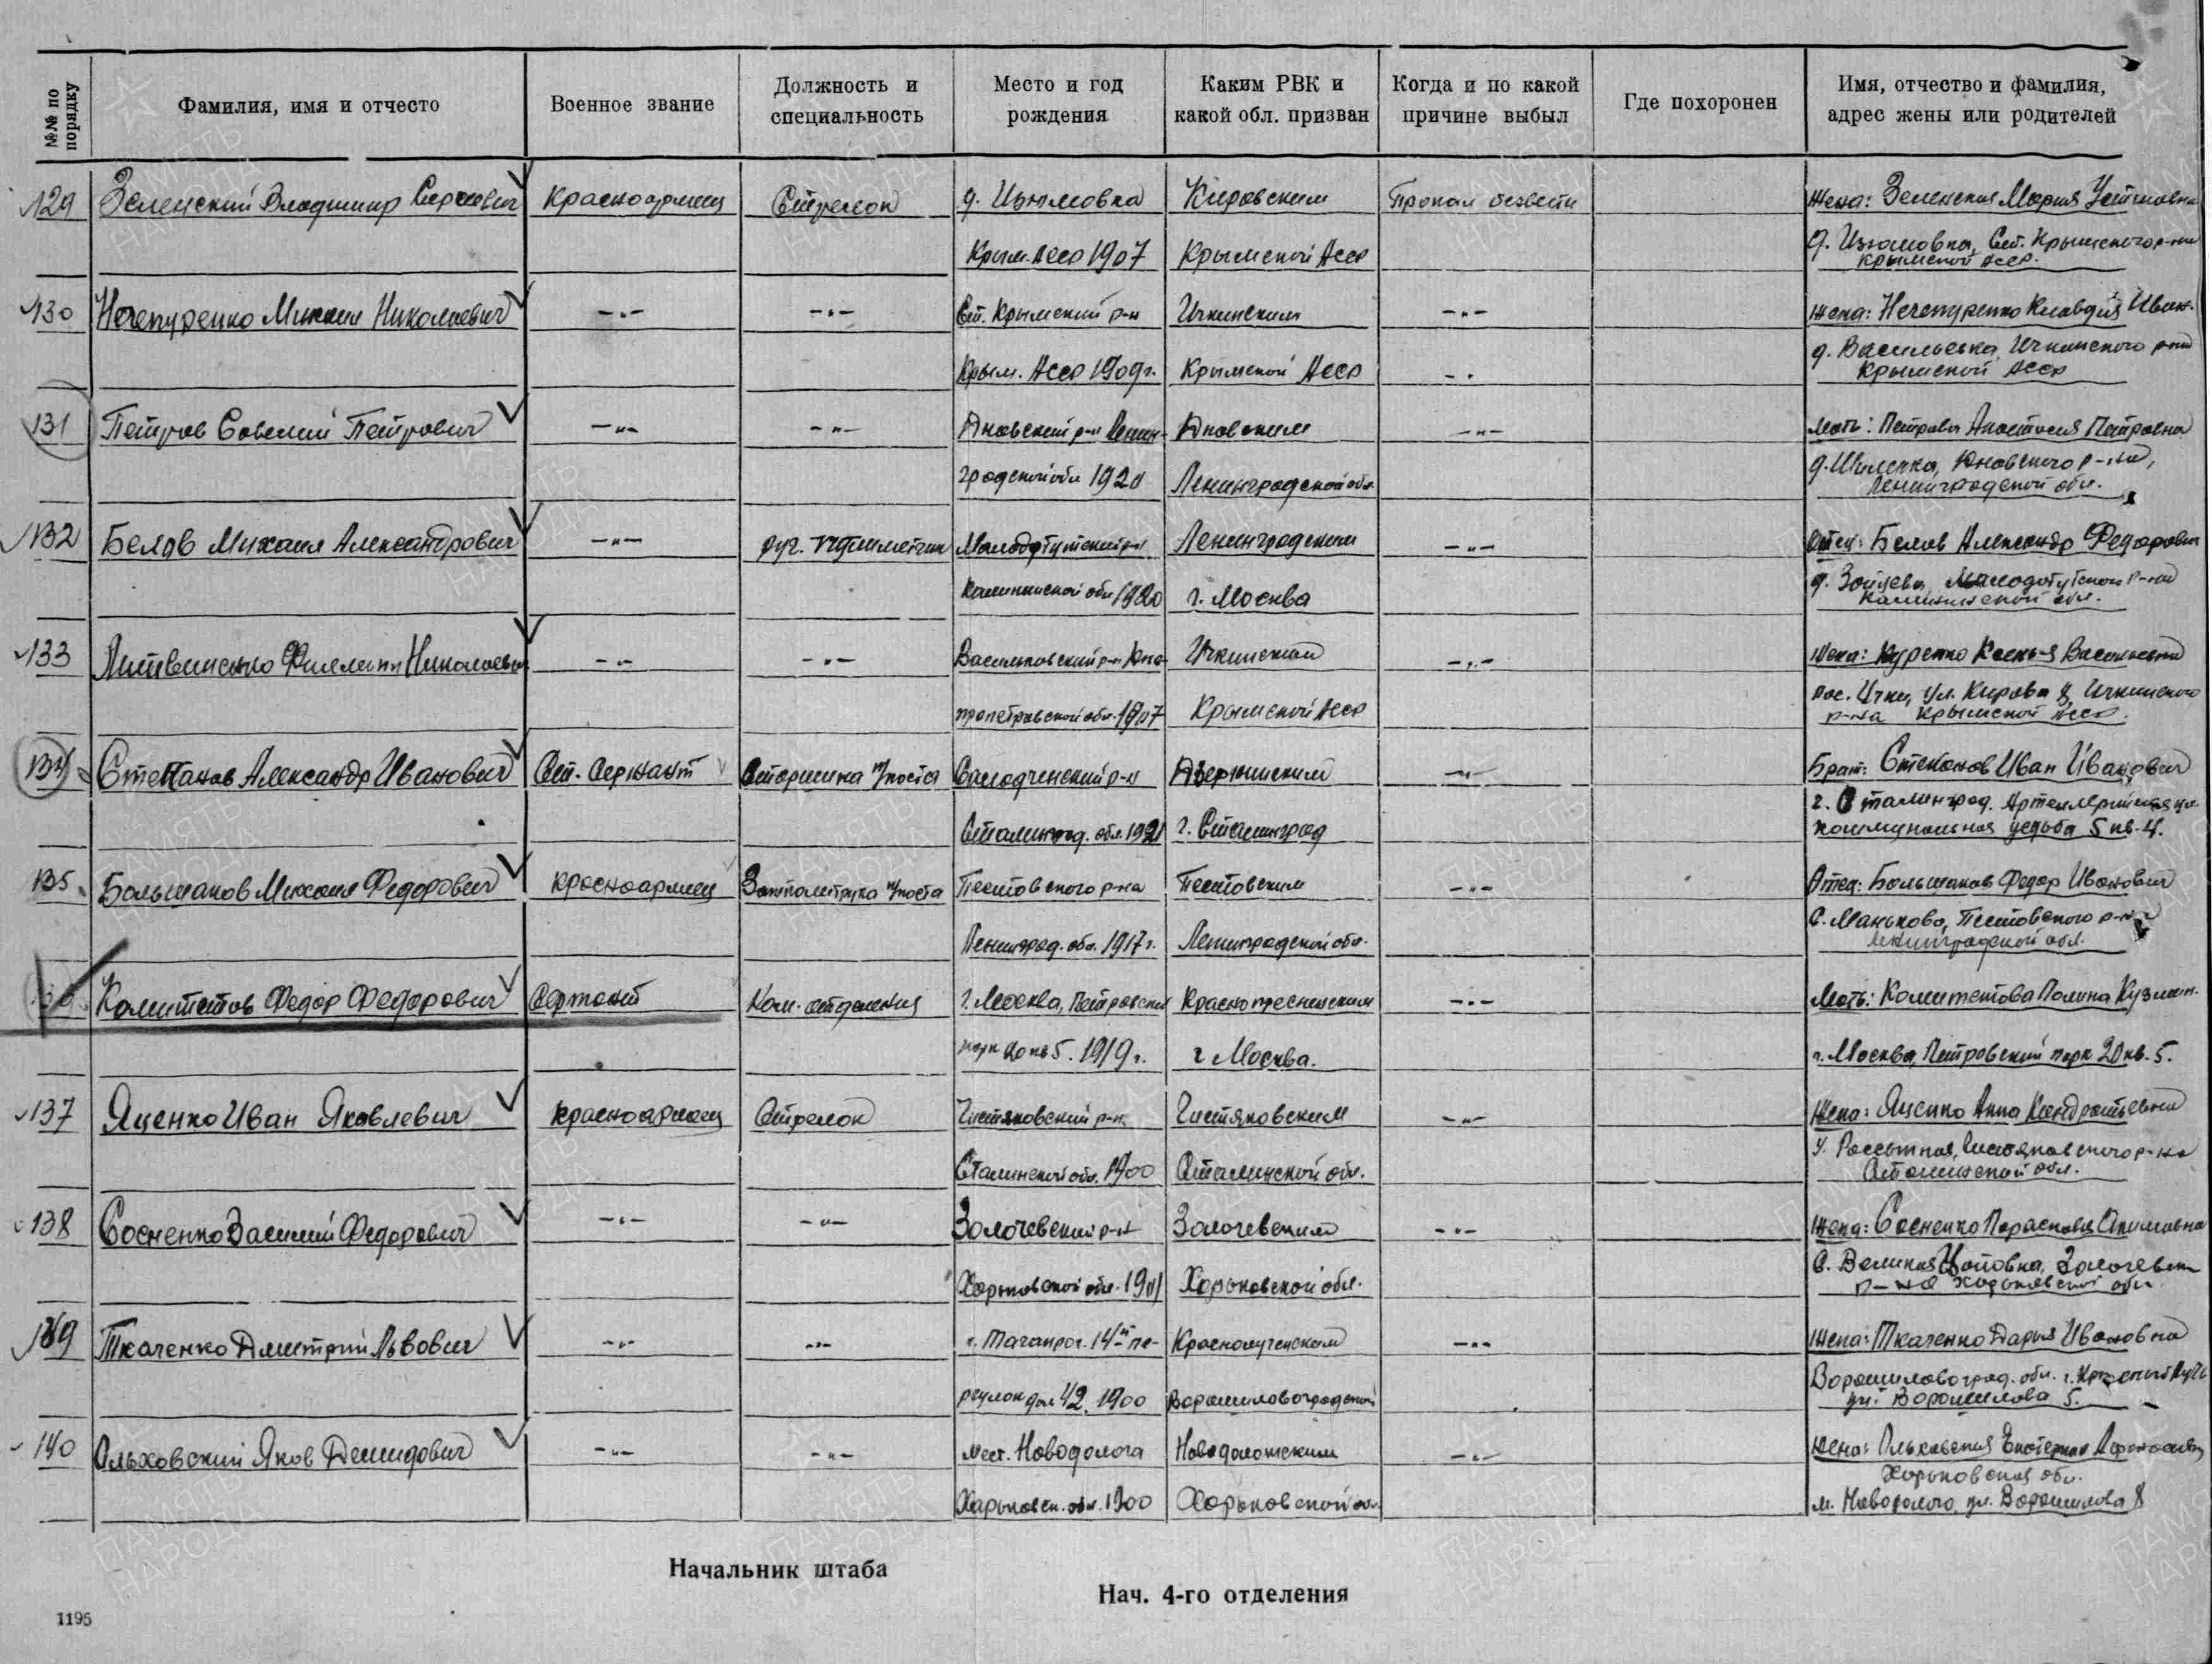 №№ по порядку
Фамилия, имя и отчесто
Военное звание
Должность и специальность
Место и год рождения
Каким РВК и какой обл. призван
Когда и по какой причине выбыл
Где похоронен
Имя, отчество и фамилия, адрес жены или родителей
129 Зеленский Владимир Сергеевич красноармеец Стрелок д. Изюмовка Кировским Пропал безвести Жена: Зеленская Мария Устиновна
Крым. АССР 1907 Крымской АССР д. Изюмовка, Ст. Крымского р-на
Крымской АССР.
130 Нечепуренко Михаил Николаевич -"- -"- Ст. Крымский р-н Ичкинским -"- Жена: Нечепуренко Клавдия Иван.
Крым. АССР 1909г. Крымской АССР -"- д. Васильевка, Ичкинского р-на
Крымской АССР
131 Петров Савелий Петрович -"- -"- Дновский р-н Ленин- Дновским -"- Мать: Петрова Анастасия Петровна
градской обл 1920 Ленинградской обл. Дновского р-на,
Ленинградской обл.
132 Белов Михаил Александрович -"- руч. пулеметчик Молодотутский р-н Ленинградским -"- Отец: Белов Александр Федорович
Калининской обл 1920 г. Москва д. Зайцево, Молодотутского р-на
Калининской обл.
133 Литвиненко Филипп Николаевич -"- -"- Васильковский р-н Дне- Ичкинский -"- Жена: Васильевна
пропетровской обл. 1907 Крымской АССР пос. Ички, ул. Кирова 8, Ичкинского
р-на Крымской АССР.
134 Степанов Александр Иванович Ст. Сержант Старшина Дзержинским -"- Брат: Степанов Иван Иванович
г. Сталинград. Артиллерийская ул.
Сталинград. обл. 1921 г. Сталинград коммунальная усадьба 5 кв. 4.
135 Большаков Михаил Федорович красноармеец Замполитрука Пестовского р-на Пестовским -"- Отец: Большаков Федор Иванович
Ленинград. обл. 1917г. Ленинградской обл. с. Маньково, Пестовского р-на
Ленинградской обл.
Комитетов Федор Федорович Сержант Ком. отделения г. Москва, Петровский Краснопресненским -"- Мать: Комитетова Полина Кузмин.
парк 20 кв 5. 1919г. г Москва. г. Москва, Петровский парк 20 кв. 5.
137 Яценко Иван Яковлевич красноармеец Стрелок Чистяковский р-н Чистяковским -"- Жена: Яценко Анна Кондратьевна
Сталинской обл. 1900 Сталинской обл. Рассыпная, Чистяковского р-на
Сталинской обл.
138 Сосненко Василий Федорович -"- -"- Золочевский р-н Золочевским -"- Жена: Сосненко Парасковья Акимовна
Харьковской обл. 1901 Харьковской обл. с. Великая Золочевск
р-на Харьковской обл
139 Ткаченко Дмитрий Львович -"- -"- г. Таганрог. 14й пе- Краснолученским -"- Жена: Ткаченко Дарья Ивановна
реулок дом 42. 1900 Ворошиловоградской Ворошиловоград. обл. г. Красный Луч
ул. Ворошилова 5.
140 Ольховский Яков Демидович -"- -"- мест. Новодолога Новодоложским -"- Жена: Ольховская Екатерина
Харьковская обл.
Харьковск. обл. 1900 Харьковской обл. м. Новодолога, ул. Ворошилова 8
Начальник штаба
Нач. 4-го отделения
1195
ПАМЯТЬ НАРОДА